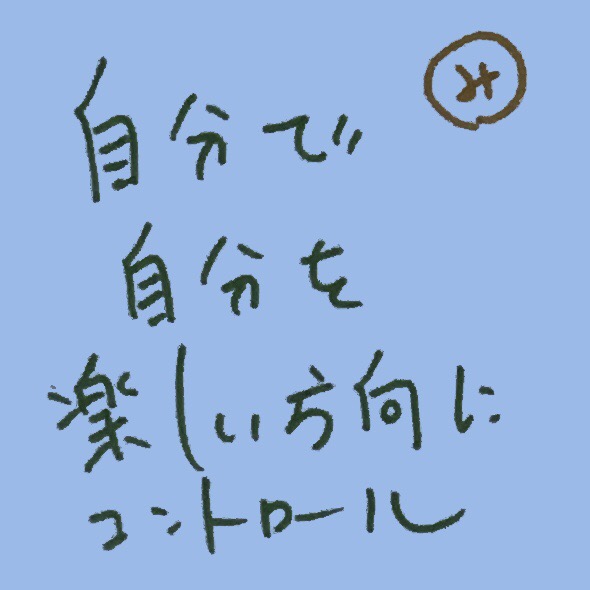 み
自分で
自分を
楽しい方向に
コントロール